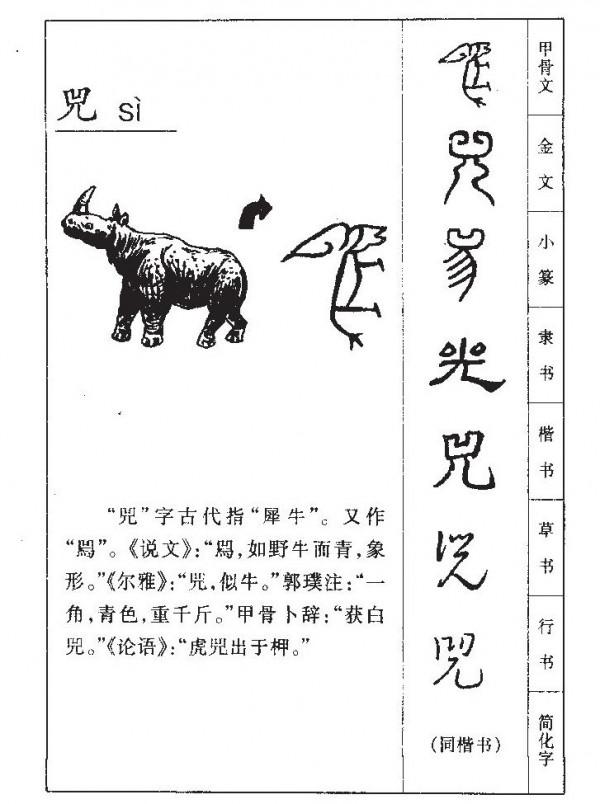 兕 sì
“兕”字古代指“犀牛”。又作
“”。《说文》：“，如野牛而青，象
形。”《尔雅》：“兕，似牛。”郭璞注：“一
角，青色，重千斤。”甲骨卜辞：“获白
兕。”《论语》：“虎兕出于柙。”
兕
兕
兕
兕
兕
兕
兕
（同楷书）
甲骨文
金文
小篆
隶书
楷书
草书
行书
简化字